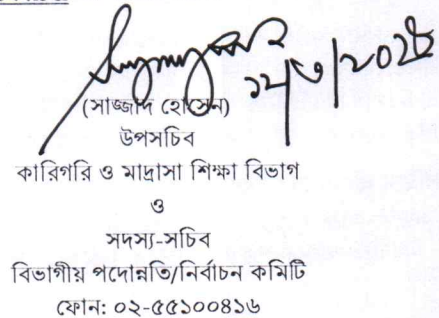 ১২/৩/২০২৪
(সাজ্জাদ হোসেন)
উপসচিব
কারিগরি ও মাদ্রাসা শিক্ষা বিভাগ
ও
সদস্য-সচিব
বিভাগীয় পদোন্নতি/নির্বাচন কমিটি
ফোন: ০২-৫৫১০০৪১৬